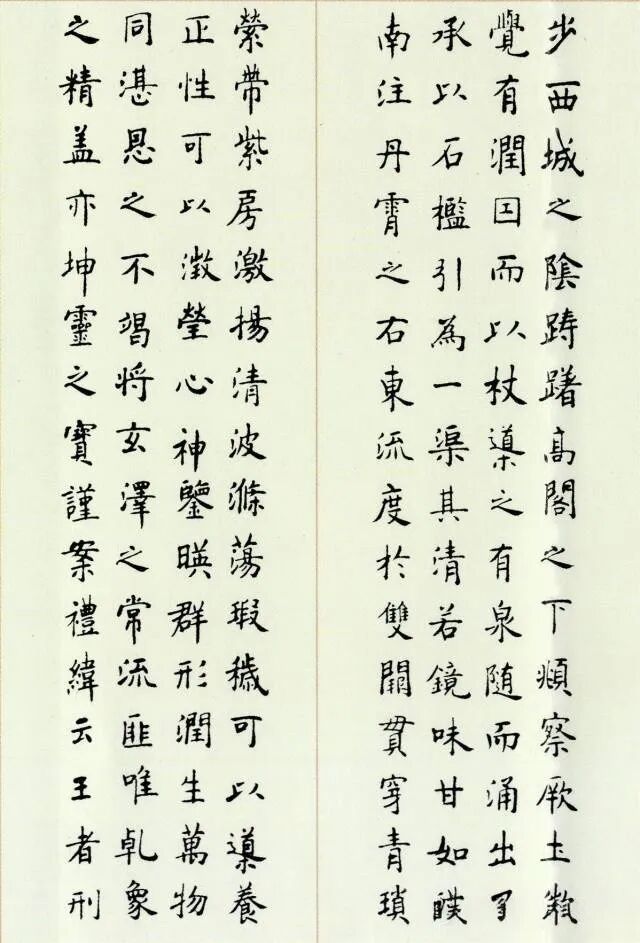 步西城之陰踌躇高閣之下頫察厥土微
覺有潤因而以杖導之有泉随而涌出乃
承以石檻引為一渠其清若鏡味甘如醴
南注丹霄之右東流度於雙闕貫穿青瑣
縈帶紫房激揚清波滌蕩瑕穢可以導養
正性可以澂瑩心神鑒暎群形潤生萬物
同湛恩之不竭将玄澤之常流匪唯乹象
之精盖亦坤靈之寶謹案禮緯云王者刑